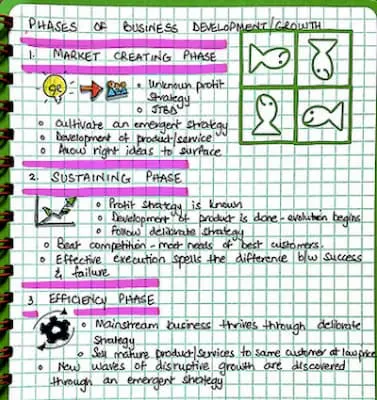 PHASES OF BUSINESS DEVELOPMENT/GROWTH
1. MARKET CREATING PHASE
Unknown profit
Strategy
JTBD
Cultivate an emergent strategy
Development of product/service
Allow right ideas to surface
2. SUSTAINING PHASE
Profit strategy is known
Development of product is done - evolution begins
Follow deliberate strategy
Beat competition - meet needs of best customers.
Effective execution spells the difference b/w success
& failure
3. EFFICIENCY PHASE
Mainstream business thrives through deliberate
strategy
Sell mature product/services to same customer at low price
New waves of disruptive growth are discovered
through an emergent strategy